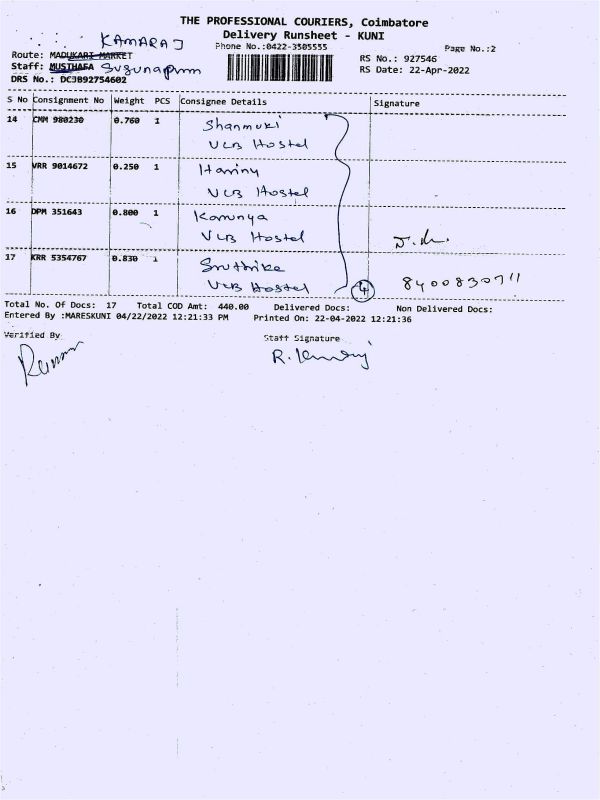 THE PROFESSIONAL COURIERS, Coimbatore
Delivery Runsheet - KUNI
KAMARAJ
Phone No.:0422-3505555
Page No.:2
Route: MADUKARI MARKET
RS No.: 927546
Staff: MUSTHAFA Sugunapuram
RS Date: 22-Apr-2022
DRS No.: DC3B92754602
S No Consignment No Weight PCS Consignee Details Signature
14 CMM 980230 0.760 1 Shanmuki
VLB Hostel
15 VRR 9014672 0.250 1 Hariny
VLB Hostel
16 DPM 351643 0.800 1 Karunya
VLB Hostel
17 KRR 5354767 0.830 1 Sruthika
VLB Hostel 4 8400830711
Total No. Of Docs: 17 Total COD Amt: 440.00 Delivered Docs: Non Delivered Docs:
Entered By :MARESKUNI 04/22/2022 12:21:33 PM Printed On: 22-04-2022 12:21:36
Verified By Staff Signature